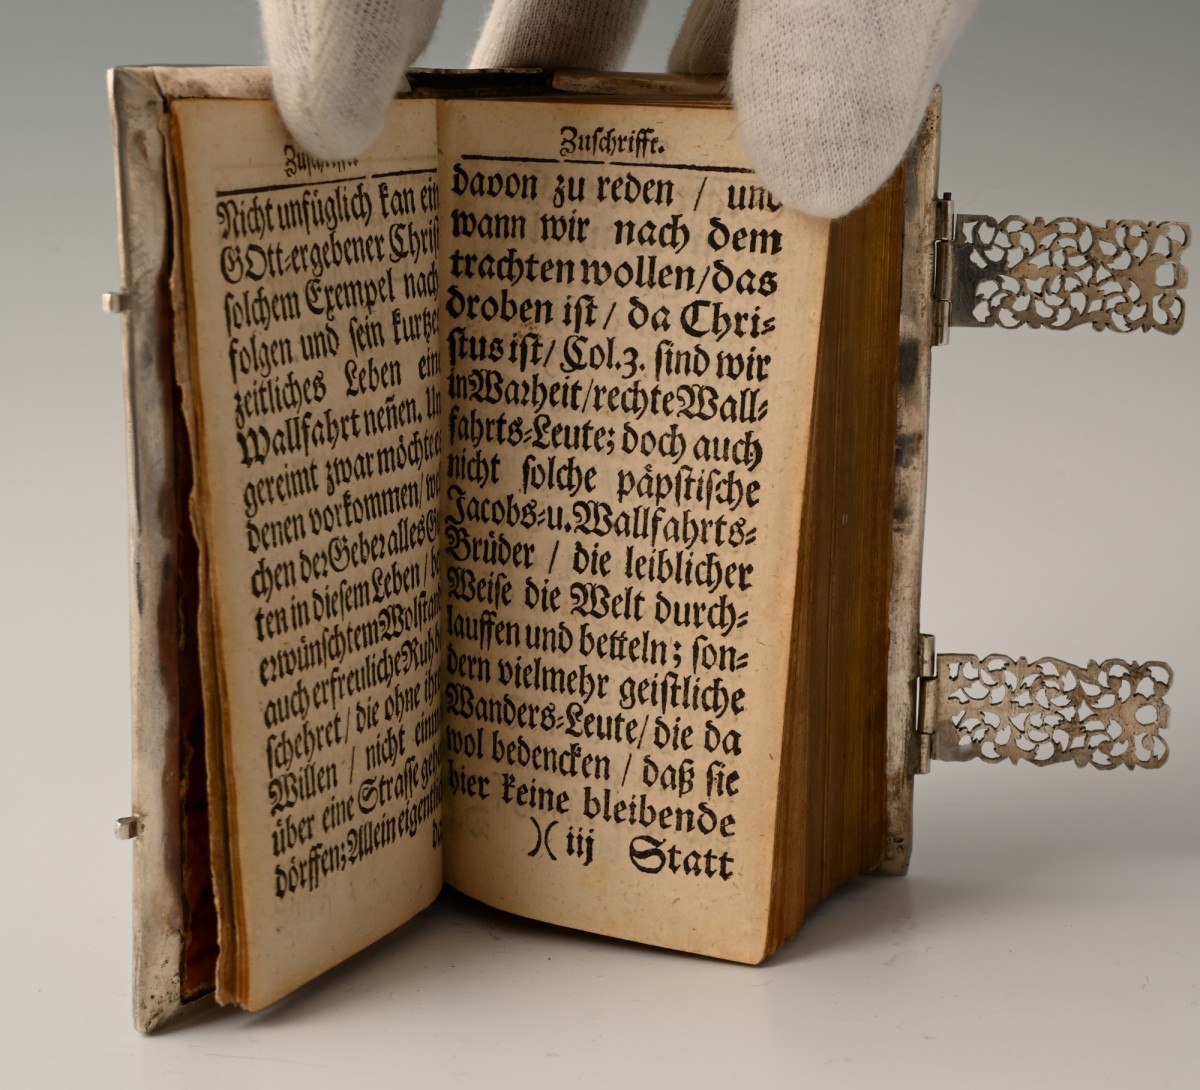 Zuschrifft.
Nicht unfüglich kan ein
GOtt-ergebener Christ
solchem Exempel nach
folgen und sein kurtzes
zeitliches Leben eine
Wallfahrt neñen. Un
gereimt zwar möchte es
denen vorkommen/
chen der Geber alles
ten in diesem Leben/
erwünschtem Wolstand
auch erfreuliche Ruh
schehret/ die ohne ihr
Willen / nicht einm
über eine Strasse gehe
dörffen; Allein eigentli
da
Zuschrifft.
davon zu reden / und
wann wir nach dem
trachten wollen/das
droben ist / da Chri-
stus ist/ Col.3. sind wir
in Warheit/rechte Wall-
fahrts-Leute; doch auch
nicht solche päpstische
Jacobs-u. Wallfahrts-
Brüder / die leiblicher
Weise die Welt durch-
lauffen und betteln; son-
dern vielmehr geistliche
Wanders-Leute/ die da
wol bedencken / daß sie
hier keine bleibende
)( iij Statt